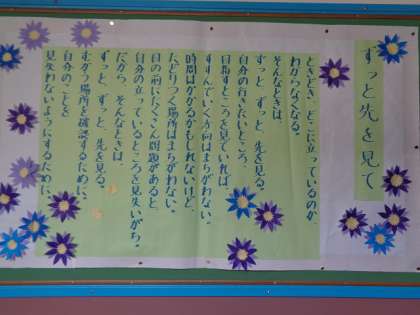 ずっと先を見て
ときどき、どこに立っているのか、
わからなくなる。
そんなときは、
ずっと、ずっと、先を見る。
自分の行きたいところ、
目指すところを見ていれば、
すすんでいく方向はまちがわない。
時間はかかるかもしれないけど、
たどりつく場所はまちがわない。
目の前にたくさん問題があると、
自分の立っているところを見失いがち。
だから、そんなときは、
ずっと、ずっと、先を見る。
むかう場所を確認するために、
自分のことを
見失わないようにするために